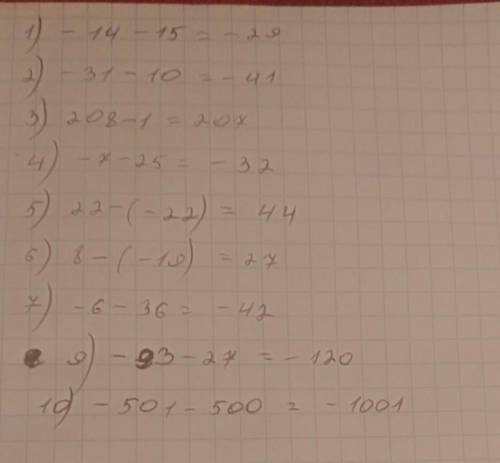 1) - 14 - 15 = - 29
2) - 31 - 10 = - 41
3) 208 - 1 = 207
4) - 7 - 25 = - 32
5) 22 - (- 22) = 44
6) 8 - (- 19) = 27
7) - 6 - 36 = - 42
9) - 93 - 27 = - 120
10) - 501 - 500 = - 1001